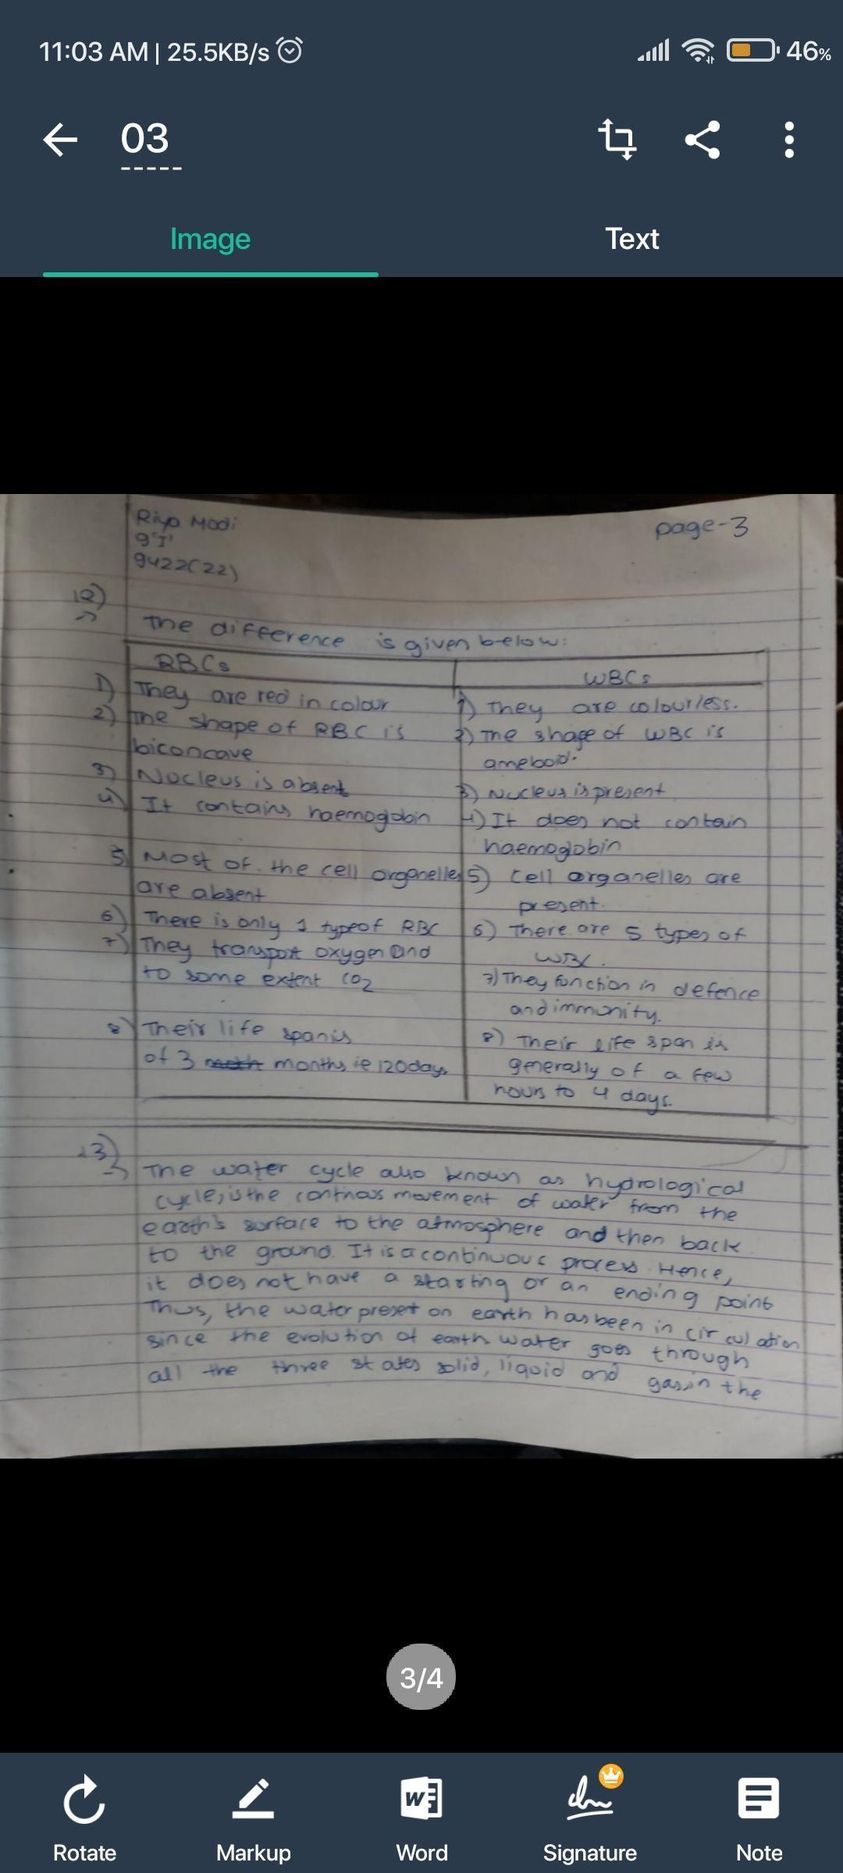 11:03 AM | 25.5KB/s
46%
03
Image
Text
Riya Modi
page-3
9'I'
9422(22)
12)
The difference is given below:
RBCs
WBCs
1) They are red in colour
1) They are colourless.
2) The shape of RBC is
2) The shape of WBC is
biconcave
ameboid.
3) Nucleus is absent
3) Nucleus is present
4) It contains haemoglobin
4) It does not contain
haemoglobin
5) Most of the cell organelles
5) Cell organelles are
are absent
present.
6) There is only 1 type of RBC
6) There are 5 types of
WBC.
7) They transport oxygen and
to some extent CO2
7) They function in defence
and immunity.
8) Their life span is
8) Their life span is
of 3 months ie 120days
generally of a few
hours to 4 days.
13)
The water cycle also known as hydrological
cycle, is the continous movement of water from the
earth's surface to the atmosphere and then back
to the ground. It is a continuous process. Hence,
it does not have a starting or an ending point
Thus, the water preset on earth has been in circulation
since the evolution of earth water goes through
all the three states solid, liquid and gas in the
3/4
Rotate
Markup
Word
Signature
Note